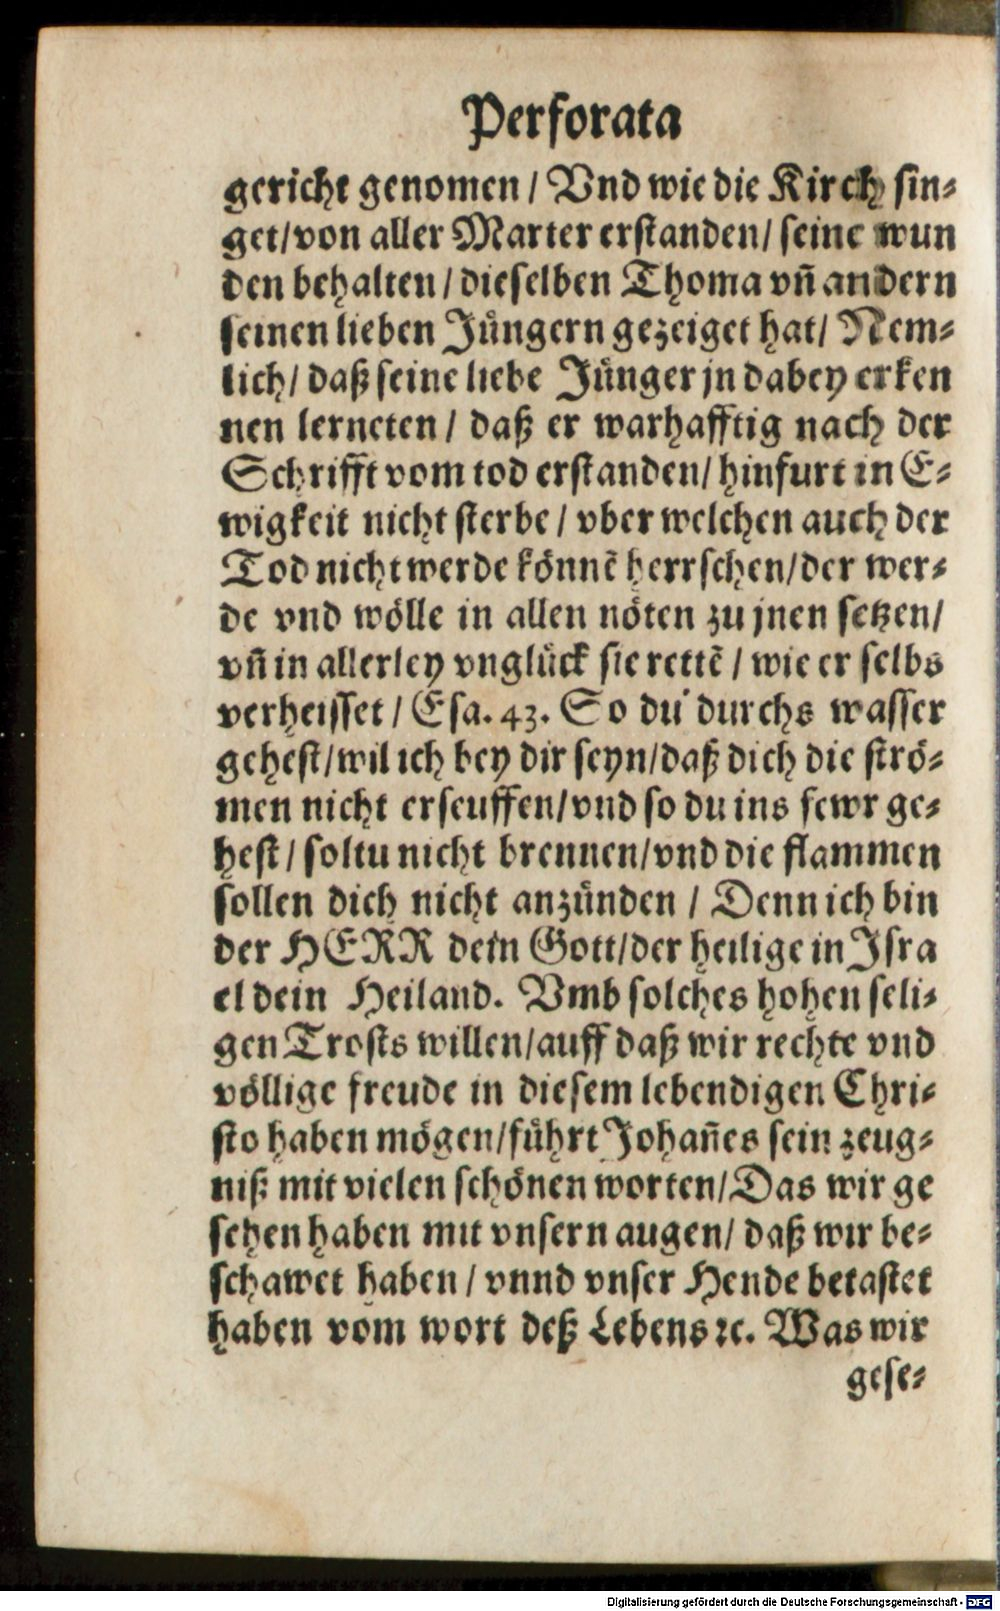 Perforata
gericht genomen / Vnd wie die Kirch sin⸗
get/von aller Marter erstanden/ seine wun
den behalten / dieselben Thoma vñ andern
seinen lieben Jüngern gezeiget hat/ Nem⸗
lich/ daß seine liebe Jünger jn dabey erken
nen lerneten / daß er warhafftig nach der
Schrifft vom tod erstanden/ hinfurt in E⸗
wigkeit nicht sterbe / vber welchen auch der
Tod nicht werde könnẽ herrschen/der wer⸗
de vnd wölle in allen nöten zu jnen setzen/
vñ in allerley vnglück sie rettẽ / wie er selbs
verheisset / Esa. 43. So du durchs wasser
gehest/wil ich bey dir seyn/daß dich die strö⸗
men nicht erseuffen/vnd so du ins fewr ge⸗
hest / soltu nicht brennen/vnd die flammen
sollen dich nicht anzünden / Denn ich bin
der HERR dein Gott/der heilige in Jsra
el dein Heiland. Vmb solches hohen seli⸗
gen Trosts willen/auff daß wir rechte vnd
völlige freude in diesem lebendigen Chri⸗
sto haben mögen/führt Johañes sein zeug⸗
niß mit vielen schönen worten/Das wir ge
sehen haben mit vnsern augen/ daß wir be⸗
schawet haben / vnnd vnser Hende betastet
haben vom wort deß Lebens ꝛc. Was wir
gese⸗
Digitalisierung gefördert durch die Deutsche Forschungsgemeinschaft - DFG